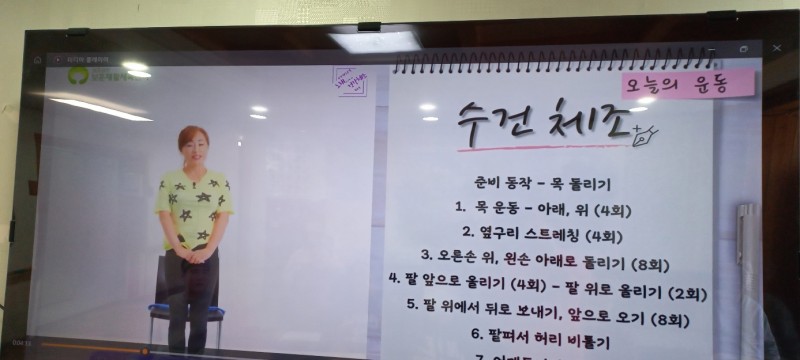 미디어 플레이어
오늘의 운동
수건 체조
준비 동작 - 목 돌리기
1. 목 운동 - 아래, 위 (4회)
2. 옆구리 스트레칭 (4회)
3. 오른손 위, 왼손 아래로 돌리기 (8회)
4. 팔 앞으로 올리기 (4회) - 팔 위로 올리기 (2회)
5. 팔 위에서 뒤로 보내기, 앞으로 오기 (8회)
6. 팔펴서 허리 비틀기